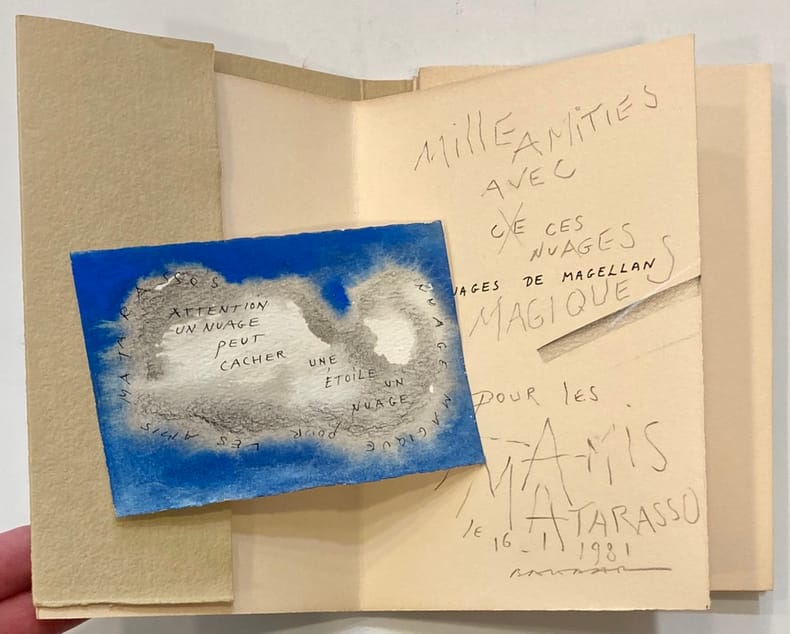 ATTENTION
UN NUAGE
PEUT
CACHER
UNE
ÉTOILE
UN
NUAGE
NUAGE MAGIQUE POUR LES AMIS MATARASSOS
MillE AMiTiES
AVEC
CE CES
NUAGES
UAGES DE MAGELLAN
MAGIQUES
POUR lES
AMiS
MATARASSO
le 16-1
1981